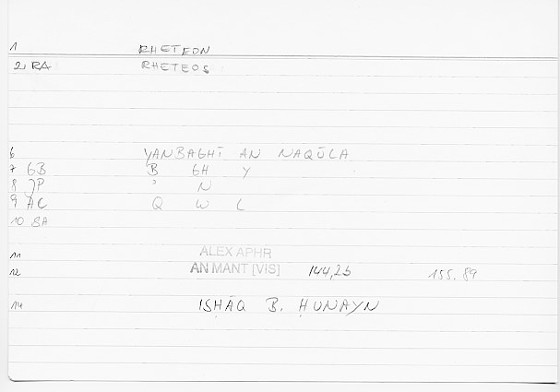 1 RHETEON
2 RA RHETEOS
6 YANBAGHĪ AN NAQŪLA
7 GB B GH Y
8 JP ʾ N
9 AC Q W L
10 SA
11 ALEX APHR
12 AN MANT [VIS] 144,25 155.89
14 ISḤĀQ B. ḤUNAYN